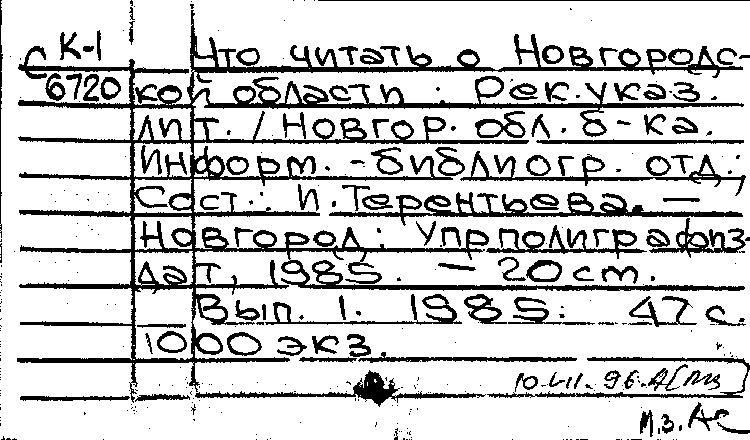 С К-1 Что читать о Новгородс-
6720 кой области : Рек.указ.
лит. / Новгор. обл. б-ка.
Информ. -библиогр. отд.;
Сост.: И. Терентьева. —
Новгород : Упрполиграфиз-
дат, 1985. — 20 см.
Вып. 1. 1985. 47 с.
1000 экз.